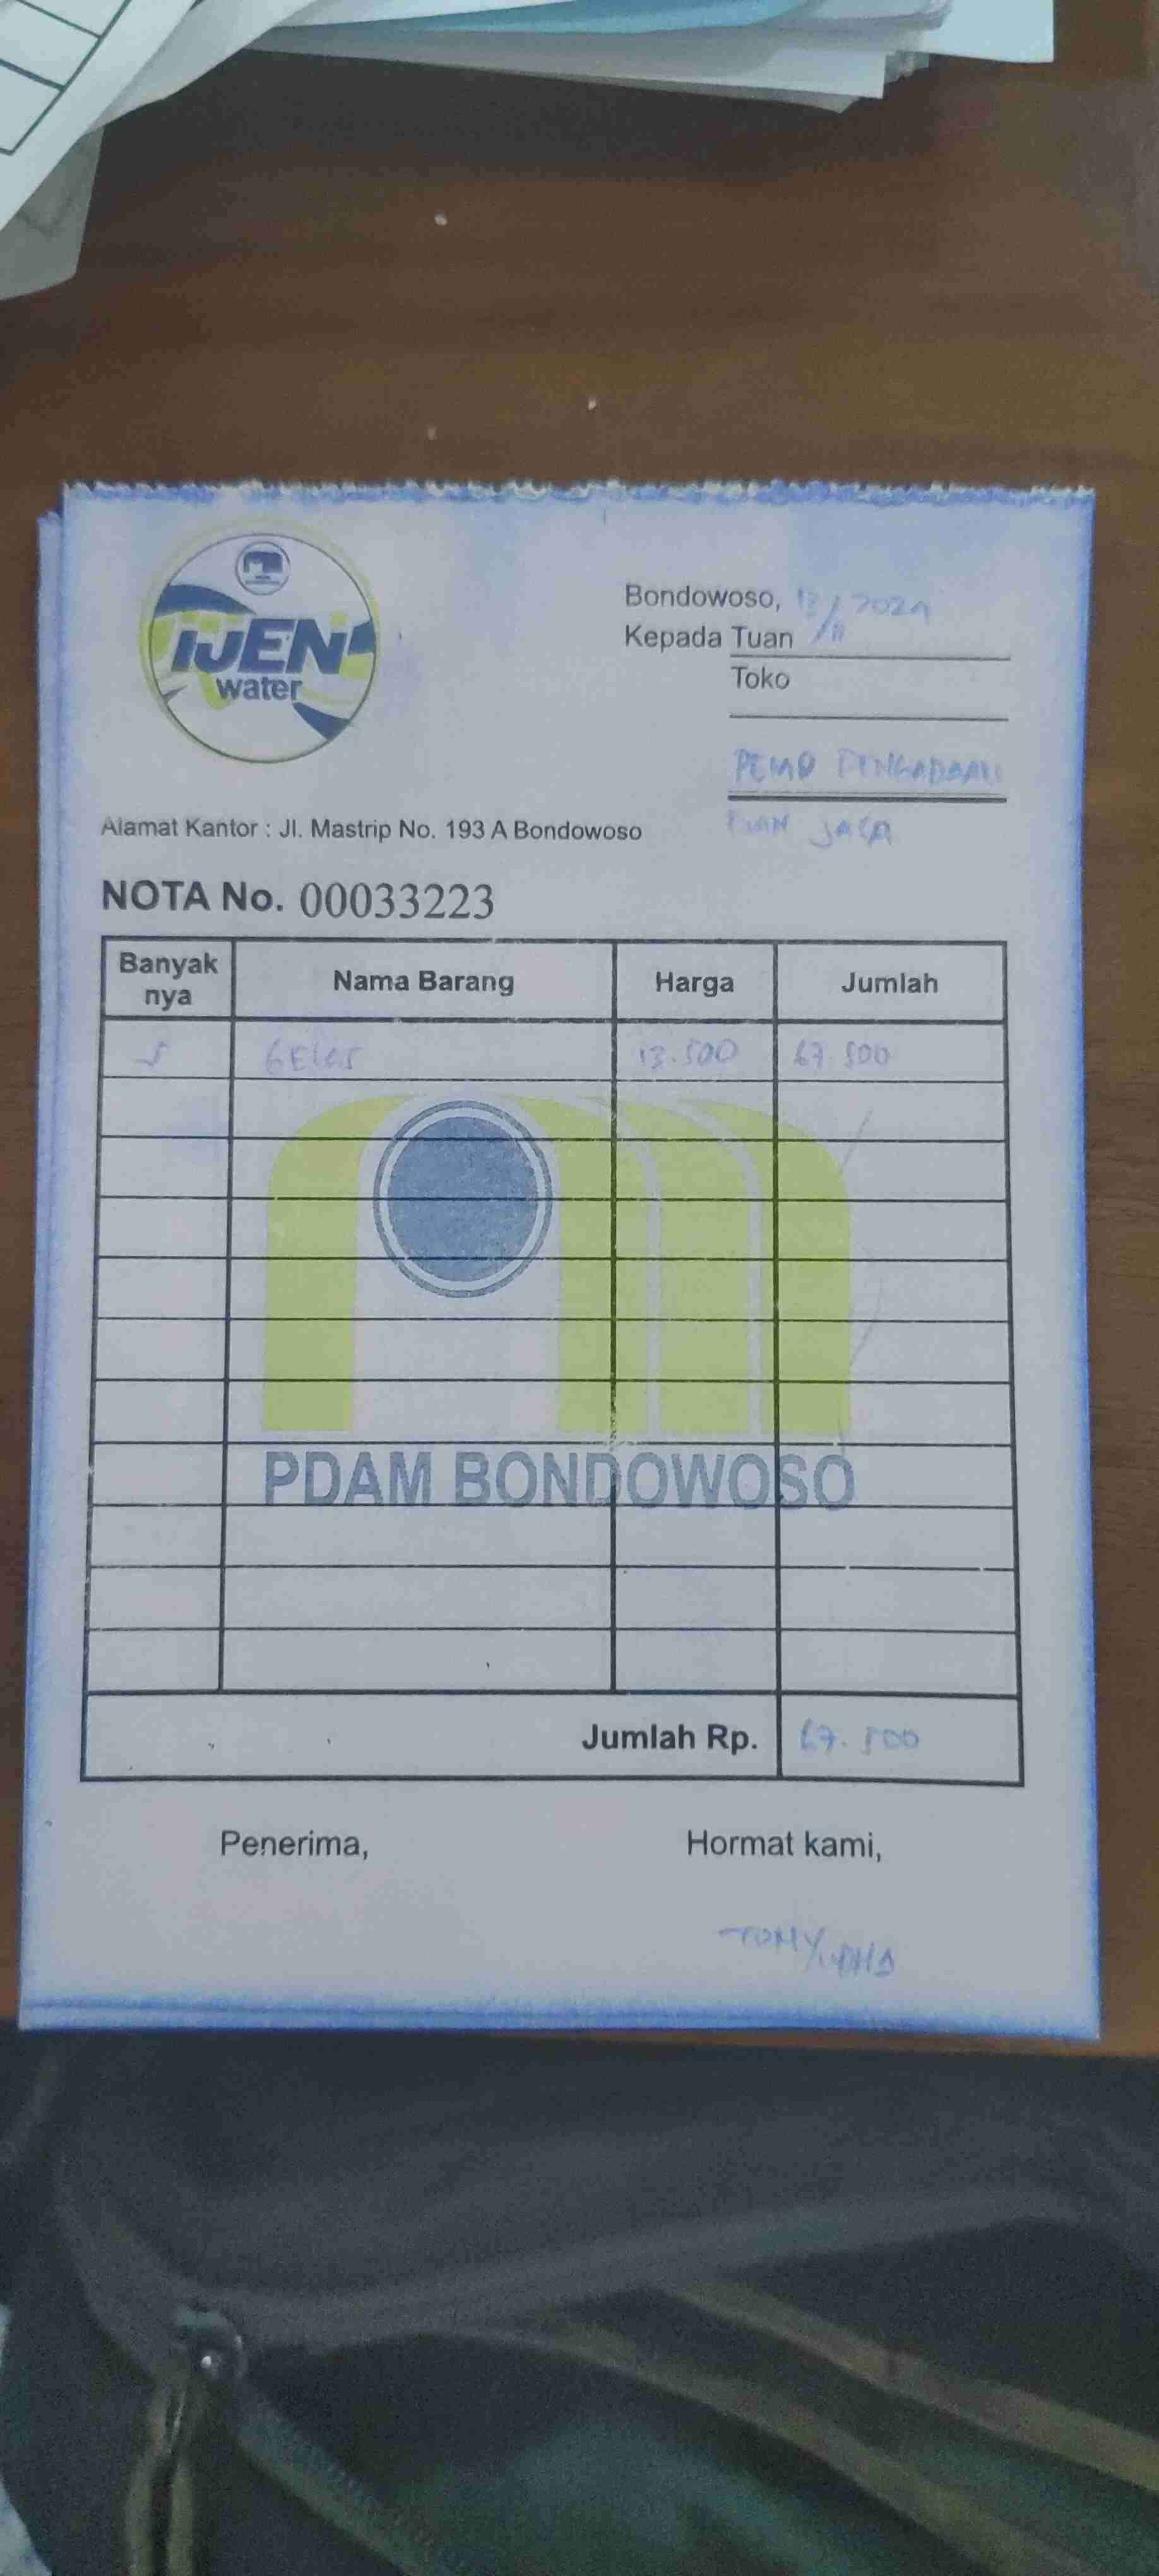 IJEN
water
Bondowoso, 13/11 2024
Kepada Tuan
Toko
PENGADAAN
JASA
Alamat Kantor : Jl. Mastrip No. 193 A Bondowoso
NOTA No. 00033223
Banyak nya Nama Barang Harga Jumlah
5 GELAS 13.500 67.500
PDAM BONDOWOSO
Jumlah Rp. 67.500
Penerima, Hormat kami,
TOMY